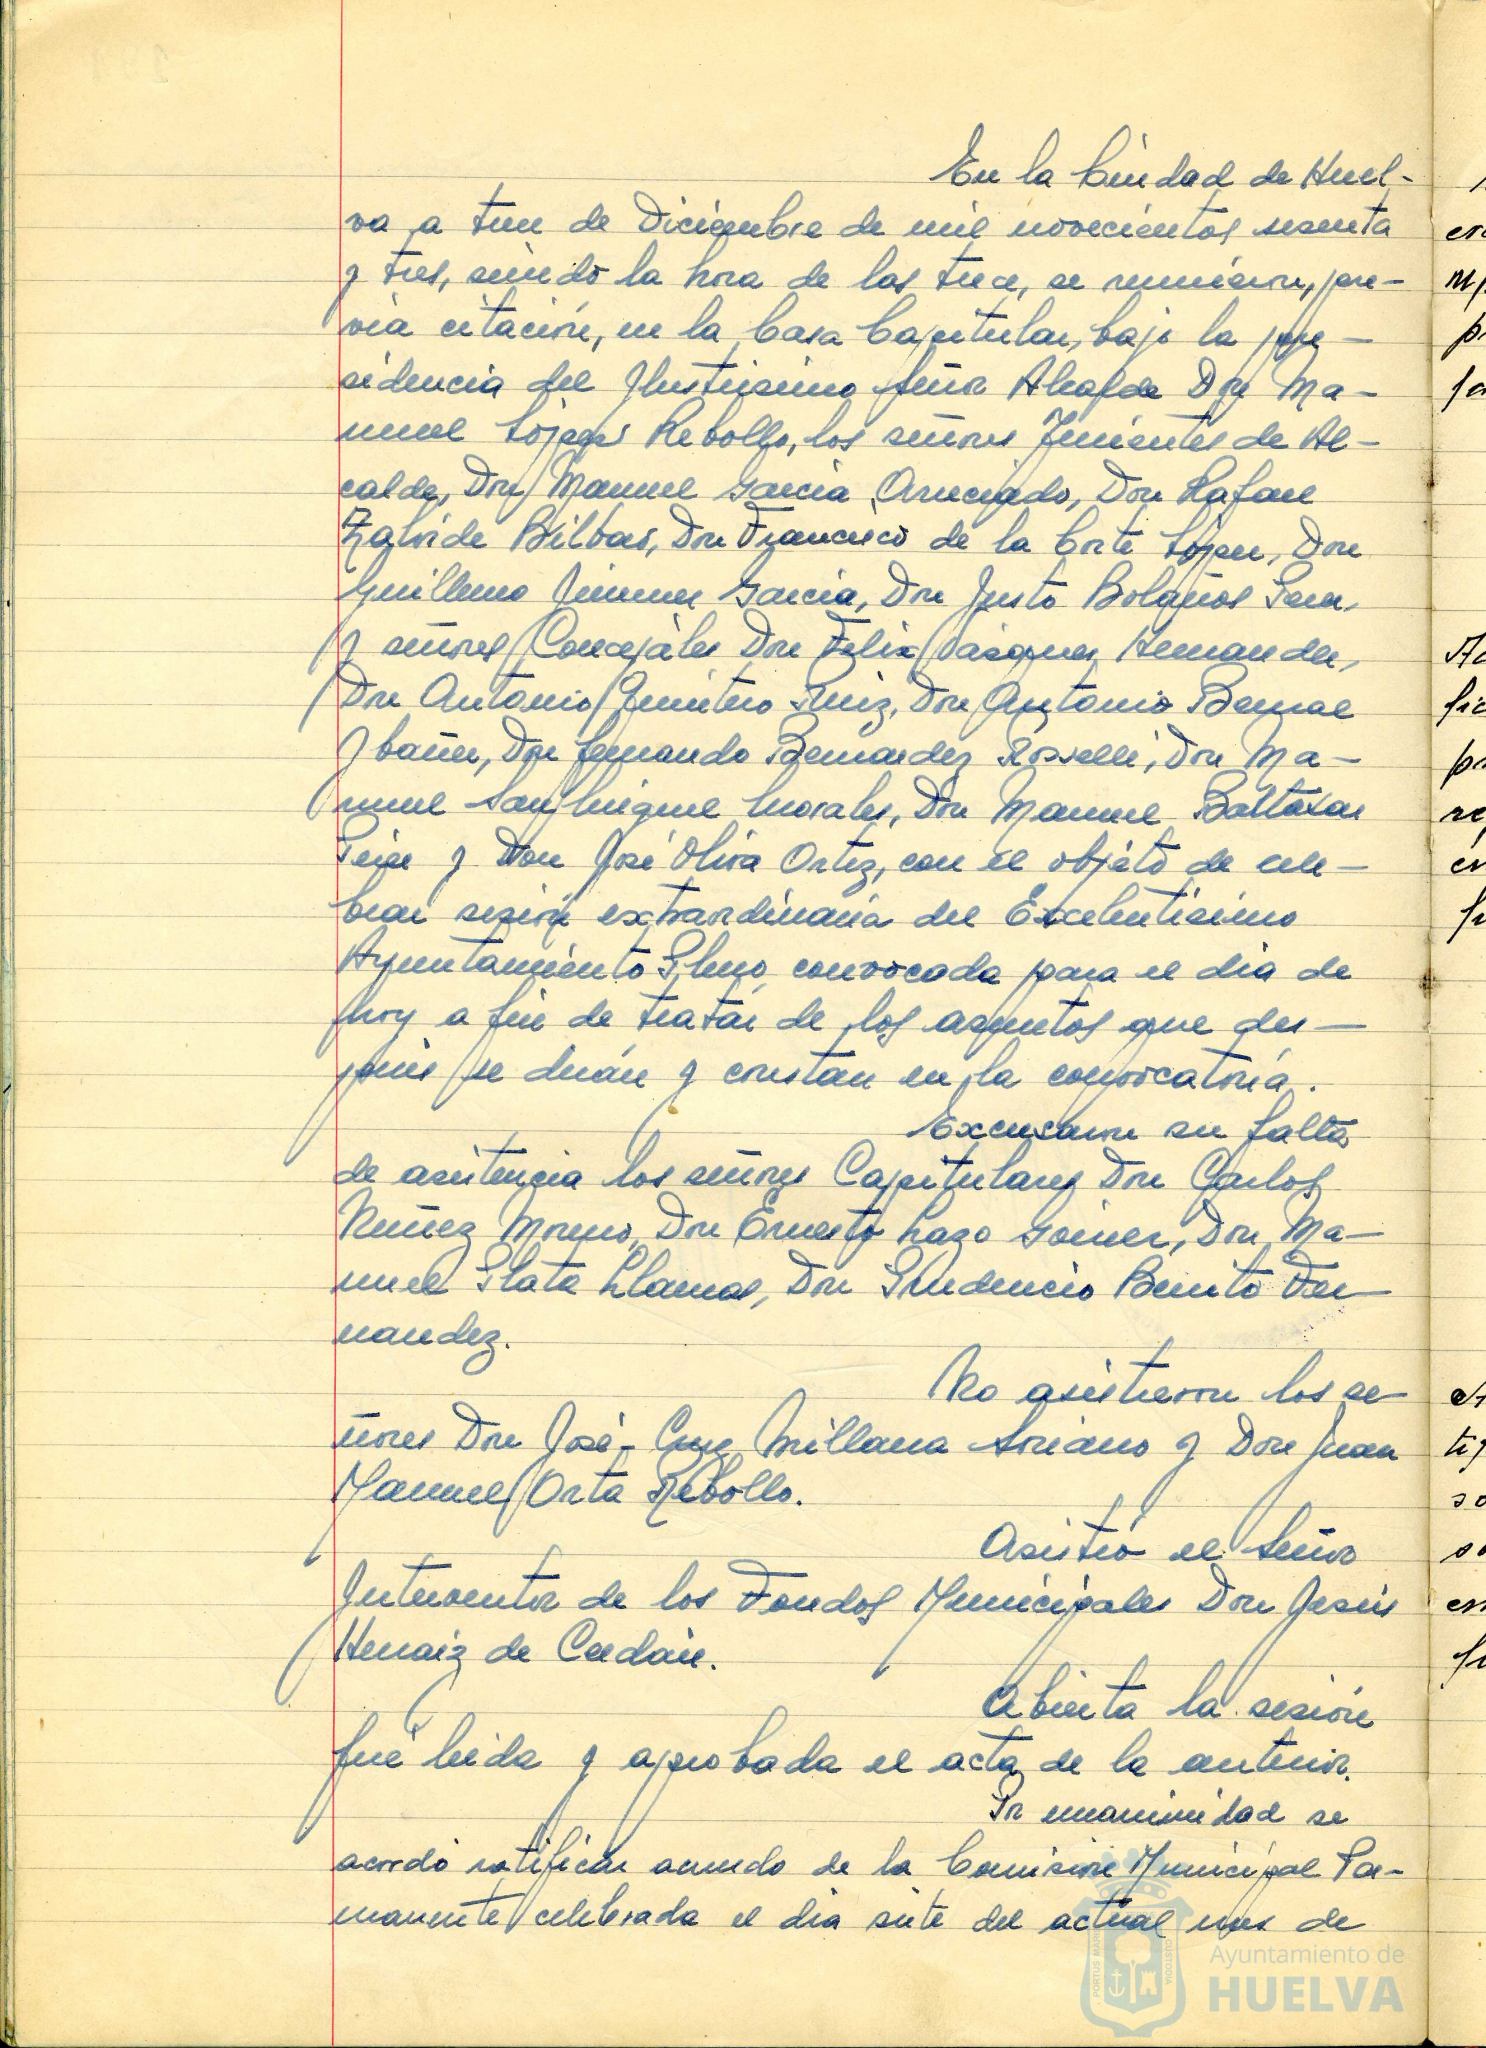 En la Ciudad de Huel-
va a trece de Diciembre de mil novecientos sesenta
y tres, siendo la hora de las trece, se reunieron, pre-
via citación, en la Casa Capitular, bajo la pre-
sidencia del Ilustrísimo Señor Alcalde Don Ma-
nuel López Rebollo, los señores Tenientes de Al-
calde, Don Manuel García Aruciado, Don Rafael
Zalvide Bilbao, Don Francisco de la Corte López, Don
Guillermo Jimenez García, Don Justo Bolaños
y señores Concejales Don Felix Vázquez Hernandez,
Don Antonio Quintero Ruiz, Don Antonio Bernal
Ybañez, Don Fernando Bernardez Rosselli, Don Ma-
nuel San Miguel Morales, Don Manuel Baltasar
y Don José Oliva Ortiz, con el objeto de cele-
brar sesión extraordinaria del Excelentísimo
Ayuntamiento Pleno, convocada para el dia de
hoy a fin de tratar de los asuntos que des-
pués se dirán y constan en la convocatoria.
Excusaron su falta
de asistencia los señores Capitulares Don Carlos
Nuñez Moreno, Don Ernesto Lazo Don Ma-
nuel Plata Llamas, Don Prudencio Benito Fer-
nandez.
No asistieron los se-
ñores Don José-Cruz Millana Soriano y Don Juan
Manuel Orta Rebollo.
Asistió el Señor
Interventor de los Fondos Municipales Don Jesús
Henaiz de
Abierta la sesión
fué leida y aprobada el acta de la anterior.
Por unanimidad se
acordó ratificar acuerdo de la Comisión Municipal Per-
manente celebrada el dia siete del actual mes de
PORTUS MARIS
CUSTODIA
Ayuntamiento de
HUELVA